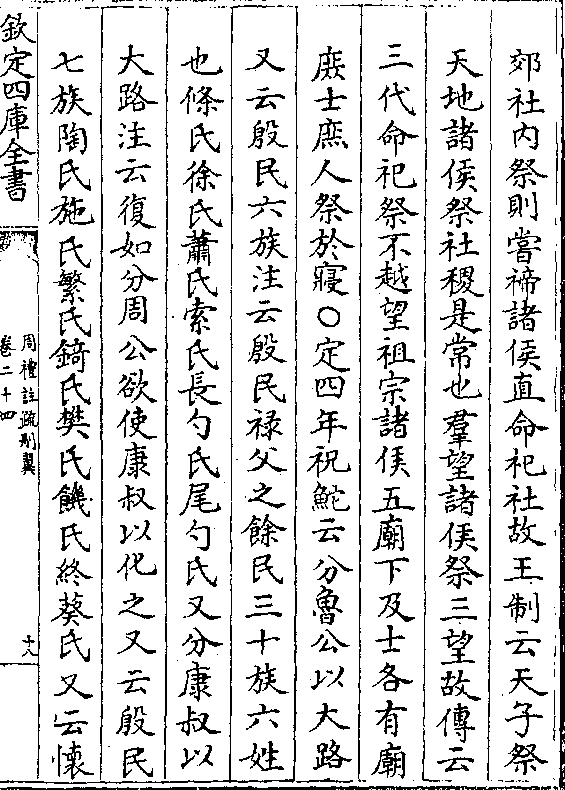 郊社內祭則嘗禘諸侯直命祀社故王制云天子祭
天地諸侯祭社稷是常也羣望諸侯祭三望故傳云
三代命祀祭不越望祖宗諸侯五廟下及士各有廟
庶士庶人祭於寢○定四年祝鮀云分魯公以大路
又云殷民六族注云殷民祿父之餘民三十族六姓
也條氏徐氏蕭氏索氏長勺氏尾勺氏又分康叔以
大路注云復如分周公欲使康叔以化之又云殷民
七族陶氏施氏繁氏錡氏樊氏饑氏終葵氏又云懷
欽定四庫全書
周禮註疏刪翼
卷二十四
十八